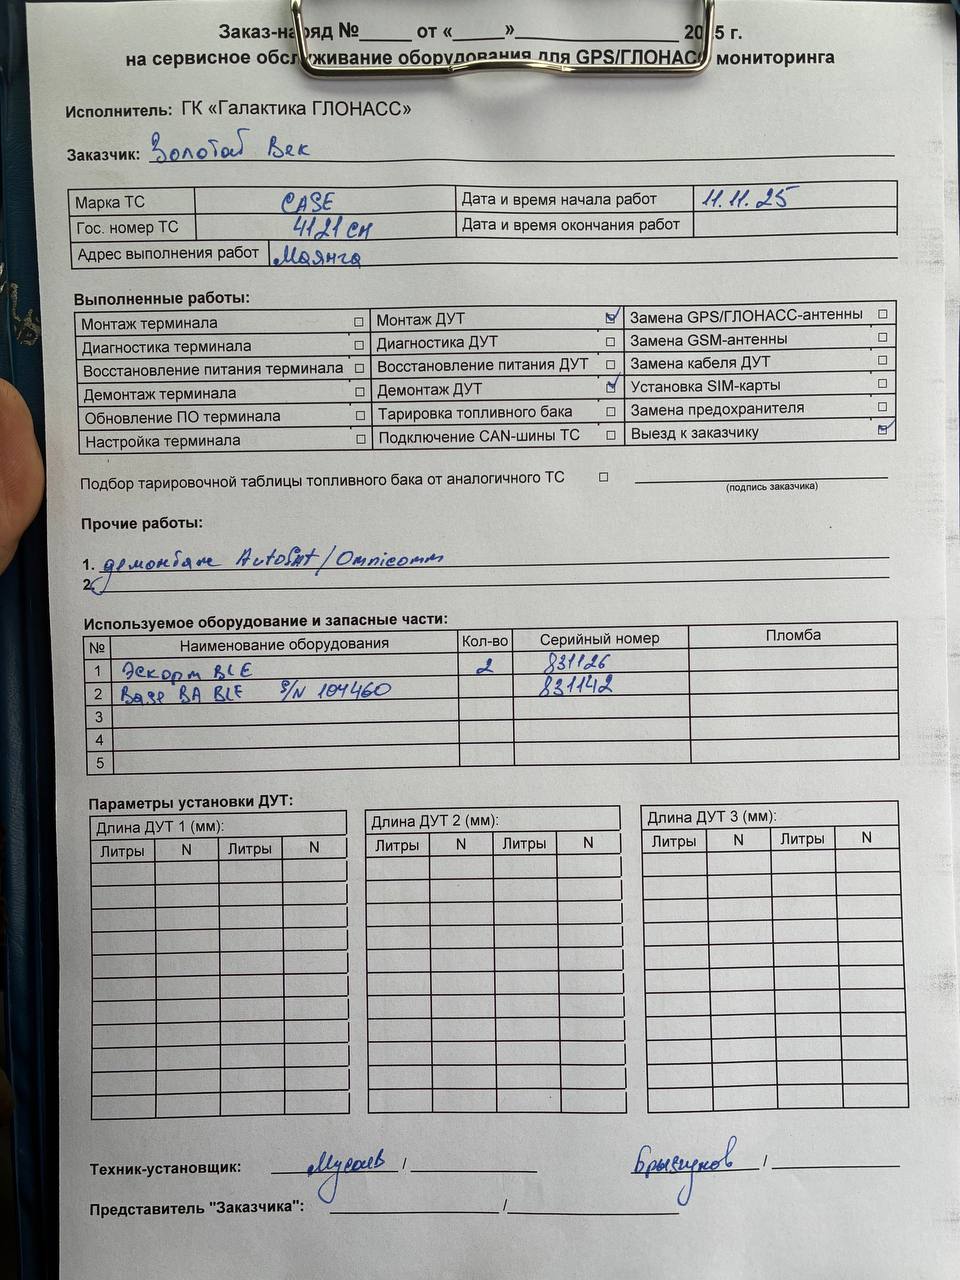 Заказ-наряд №_____ от «_____»________________ 2025 г.
на сервисное обслуживание оборудования для GPS/ГЛОНАСС мониторинга
Исполнитель: ГК «Галактика ГЛОНАСС»
Заказчик: Золотой Век
Марка ТС CASE Дата и время начала работ 11.11.25
Гос. номер ТС 4121 СН Дата и время окончания работ
Адрес выполнения работ Маянга
Выполненные работы:
Монтаж терминала ☐ Монтаж ДУТ ☑ Замена GPS/ГЛОНАСС-антенны ☐
Диагностика терминала ☐ Диагностика ДУТ ☐ Замена GSM-антенны ☐
Восстановление питания терминала ☐ Восстановление питания ДУТ ☐ Замена кабеля ДУТ ☐
Демонтаж терминала ☐ Демонтаж ДУТ ☑ Установка SIM-карты ☐
Обновление ПО терминала ☐ Тарировка топливного бака ☐ Замена предохранителя ☐
Настройка терминала ☐ Подключение CAN-шины ТС ☐ Выезд к заказчику ☑
Подбор тарировочной таблицы топливного бака от аналогичного ТС ☐
(подпись заказчика)
Прочие работы:
1. демонтаж AutoSat/Omnicomm
2.
Используемое оборудование и запасные части:
№ Наименование оборудования Кол-во Серийный номер Пломба
1 Эскорт BLE 2 831126
2 Base BA BLE S/N 104460 831142
3
4
5
Параметры установки ДУТ:
Длина ДУТ 1 (мм): Длина ДУТ 2 (мм): Длина ДУТ 3 (мм):
Литры N Литры N Литры N Литры N Литры N Литры N
Техник-установщик: Мусаев / Брызгунов /
Представитель "Заказчика": /